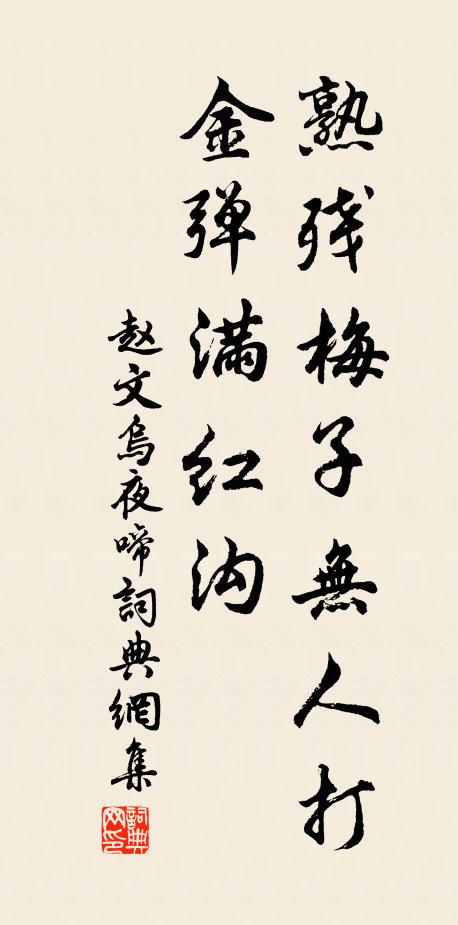 熟残梅子無人打
金弹满红沟
赵文烏夜啼詞典網集
詞典網印